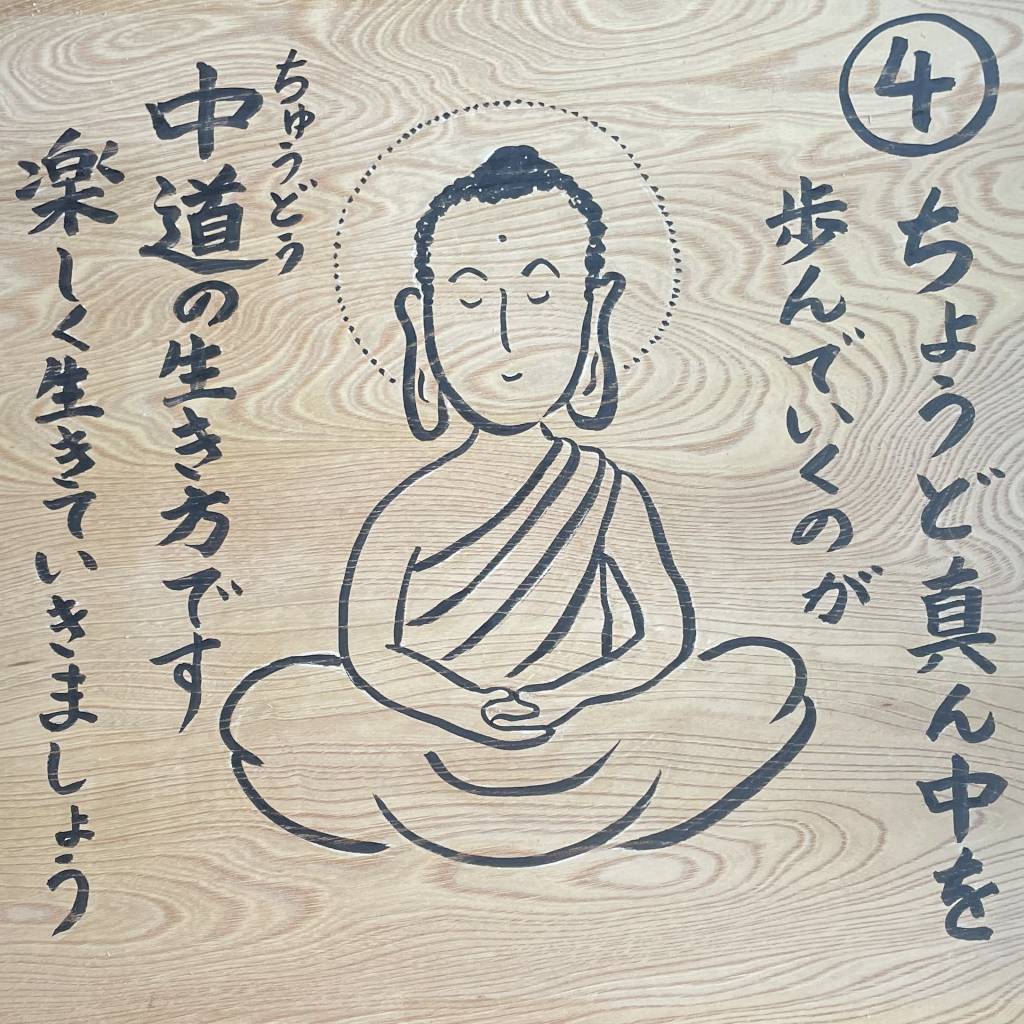 ④
ちょうど真ん中を
歩んでいくのが
ちゅうどう
中道の生き方です
楽しく生きていきましょう